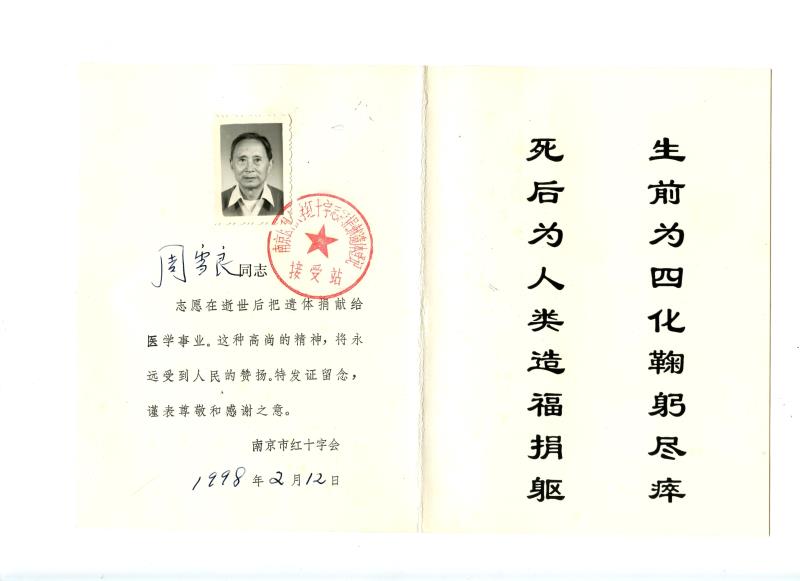 周雪良同志
志愿在逝世后把遗体捐献给
医学事业。这种高尚的精神，将永
远受到人民的赞扬。特发证留念，
谨表尊敬和感谢之意。
南京市红十字会
1998年2月12日
接受站
生前为四化鞠躬尽瘁
死后为人类造福捐躯